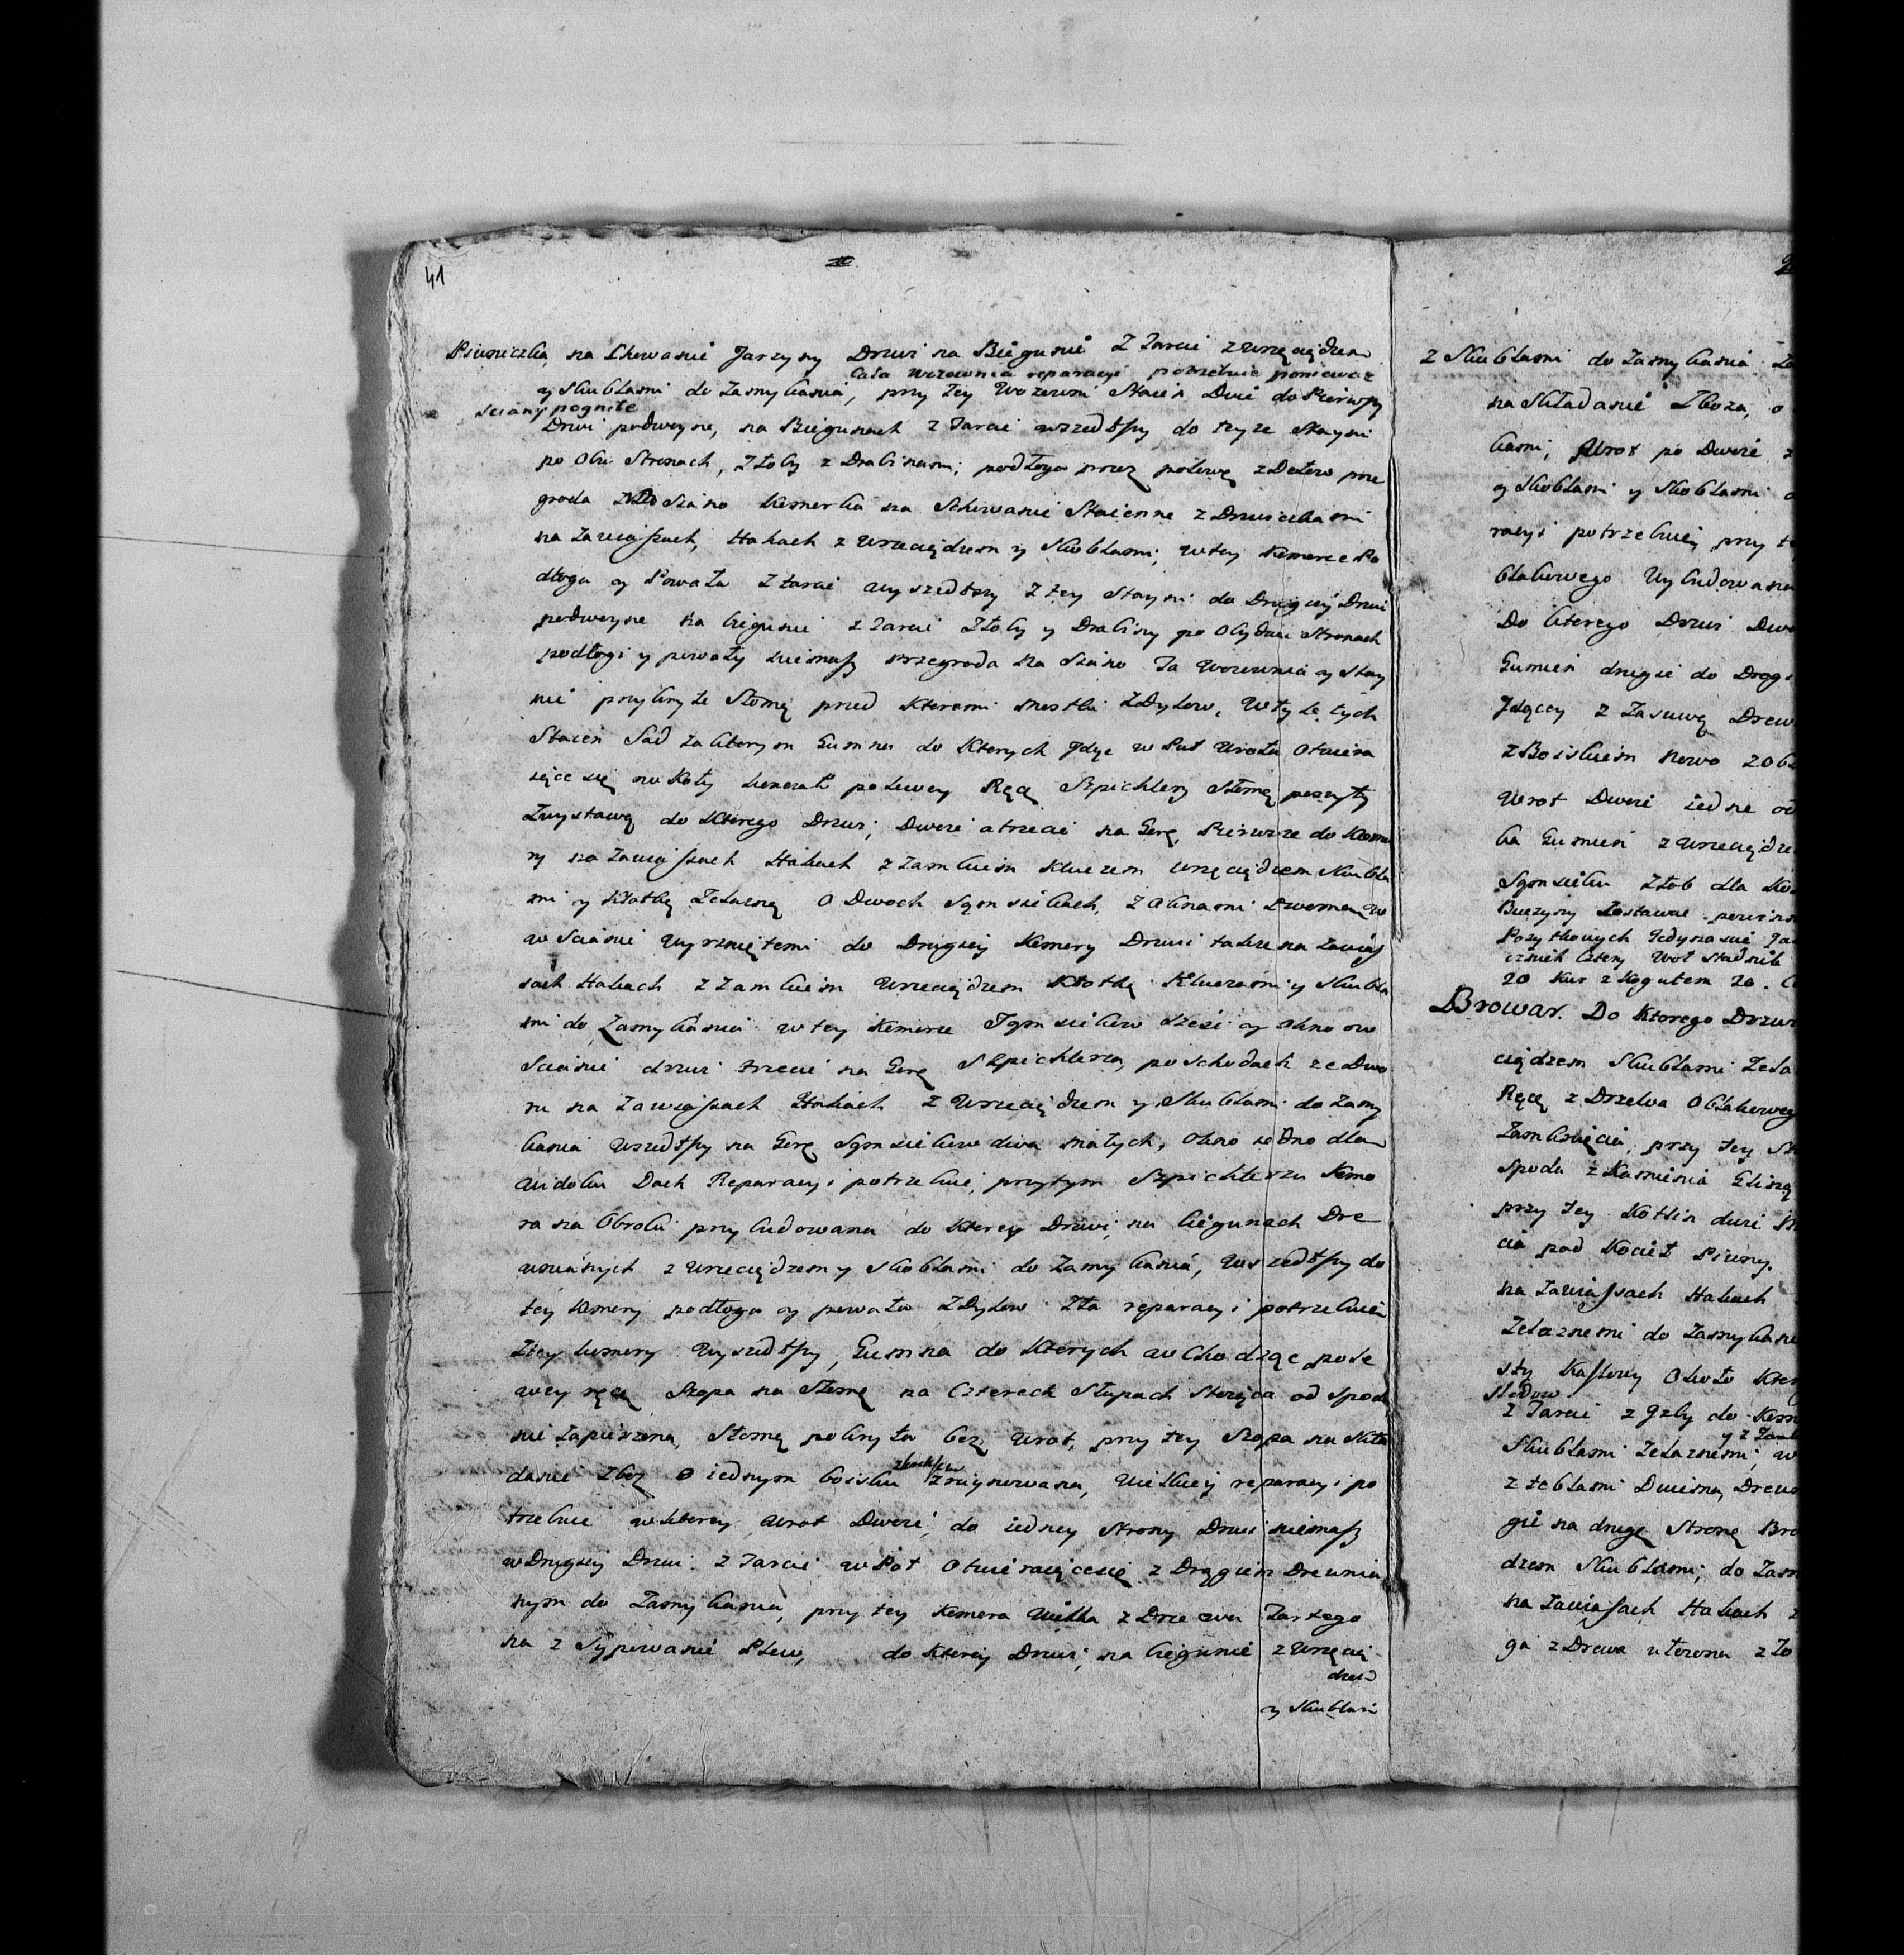 41
Piwniczka, na Chowanie Jarzyny Drzwi na Biegunie z Tarcic z wrzeciądzem
Cała Wozownia reparacyi potrzebuie poniewaz
y Skublami do Zamykania, przy tey Wozowni Staien Dwie do Pierwszy
sciany pogniłe
Drzwi podwoyne, na Biegunach z Tarcic wszedłszy do teyze Stayni
po Obu Stronach, Złoby z Drabinami; podłoga przez połowę z Delow prze
groda Siano Komorka na Schowanie Staienne z Drzwiczkami
na Zawiaſzach, Hakach z wrzeciądzem y Skoblami; w tey Komorce Po
dłoga y Powała z tarcic wyszedłszy z tey Stayni do Drugiey Drzwi
podwoyne na biegunie z Tarcic Złoby y Drabiny po Obydwu Stronach
podłogi y powały niemaſz przegroda na Siano Ta Wozownia y Stay
nie pokryte Słomą przed Ktorami mostki z Dylow, W tyle tych
Staien Sad za ktorym Gumna do Ktorych Jdąc w Puł Wrota Otwiera
iące się po lewey Ręce Szpichlerz Słomą poszyty
Zwystawą do Ktorego Drzwi, Dwoie a trzecie na Gorę, Pierwsze do Komo
ry na Zawiaſzach Hakach z Zamkiem Kluczem wrzeciądzem Skubla
mi y Kłotką Zelazną o Dwoch Sąmsiekach, z Oknami Dwoma w
w Scianie Wyrzniętemi do Drugiey Komory Drzwi takze na Zawiaſ
sach Hakach z Zamkiem Wrzeciądzem Kłotką Kluczami y Skubla
mi do Zamykania w tey Komorze Sąmsiekow Sześć y Okno w
Scianie drzwi trzecie na Gorę Szpichlerza, po Schodach ze Dwo
ru na Zawiaſzach Hakach z Wrzeciądzem y Skublami do Zamy
kania wszedłszy na Gorę Sąmsiekow dwa małych, Okno iedno dla
widoku Dach Reparacyi potrzebuie, przytym Szpichlerzu Komo
ra na Obroki przybudowana do Ktorey Drzwi, na biegunach Dre
wnianych z wrzeciądzem y Skoblami do Zamykania, Wszedłszy do
tey Komory podłoga y powała z Dylow Zła reparacyi potrzebuie
Z tey Komory Wyszedłszy, Gumna do Ktorych wchodząc po le
wey ręce Szopa na Słomę na Czterech Słupach Stoiąca od Spodu
nie Zapierzona, Słomą pokryta bez Wrot, przy tey Szopa na Skła
danie Zboz o iednym boisku Zruynowana, Wielkiey reparacyi po
trzebuie w ktorey Wrot Dwoie, do iedney Strony Drzwi niemaſz
w Drugiey Drzwi z Tarcic w Poł Otwieraiącesię z Drągiem Drewnia
nym do Zamykania, przy tey Komora Wielka z Drzewa Tartego
na zSypowanie Plew, do Ktorey Drzwi, na biegunie z Wrzecią
dzem
y Skublami
z Skublami do Zamykania
na Składanie Zboza, o
kami, Wrot po Dwoie z
y Skoblami y Skoblami
racyi potrzebuią przy t
blakowego Wybudowana
Do ktorego Drzwi Dwo
Gumien drugie do Drogi
Jdącey z Zasuwą Drew
z Boiskiem Nowo z obl
Wrot Dwoie iedne od
ka Gumien z Wrzeciądze
Sąmsieku Złob dla
20 Kur z Kogutem 20.
Browar. Do Ktorego Drzwi
ciądzem Skublami Zela
Ręcę z Drzewa Oblakoweg
Zamknięcia, przy tey
Spodu z Kamienia Gliną
przy tey Kotlin dwie
cia pod Kocieł Piwny.
na Zawiaſsach Hakach
Zelaznemi do Zamykania
z Tarcic z Jzby do Kom
y z Zamk
Skublami Zelaznemi; w
gie na drugę Stronę Bro
dzem Skublami; do Zam
na Zawiaſach Hakach z
ga z Drzewa ułozona z